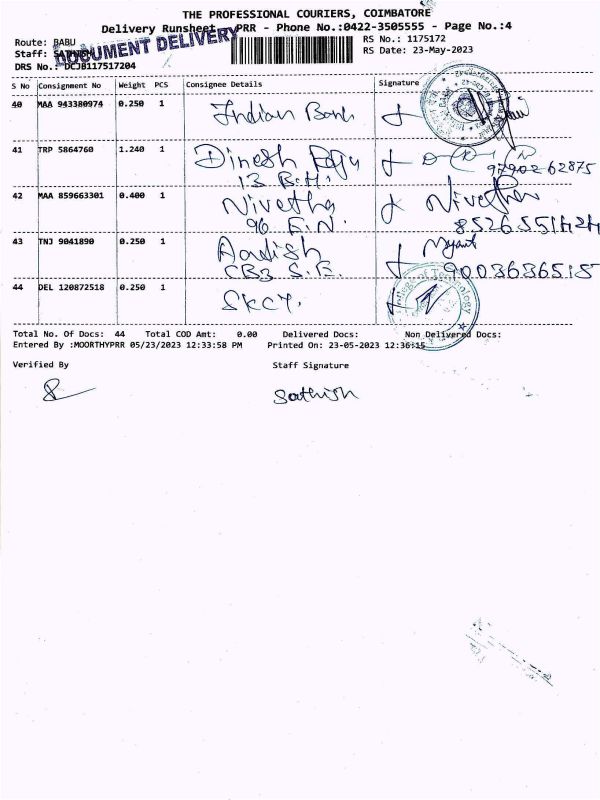 THE PROFESSIONAL COURIERS, COIMBATORE
Delivery Runsheet - PRR - Phone No.:0422-3505555 - Page No.:4
Route: BABU
RS No.: 1175172
Staff: SATHISH
RS Date: 23-May-2023
DOCUMENT DELIVERY
DRS No.: DCJB117517204
S No Consignment No Weight PCS Consignee Details Signature
40 MAA 943380974 0.250 1 Indian Bank
41 TRP 5864760 1.240 1 Dinesh Raju
13 B.H. 97902-62875
42 MAA 859663301 0.400 1 Nivetha Nivetha
96 E.N. 8526551424
43 TNJ 9041890 0.250 1 Aadish
CB3 S.E. 9003636515
44 DEL 120872518 0.250 1 SKCT.
College of Technology
Total No. Of Docs: 44 Total COD Amt: 0.00 Delivered Docs: Non Delivered Docs:
Entered By :MOORTHYPRR 05/23/2023 12:33:58 PM Printed On: 23-05-2023 12:36:15
Verified By Staff Signature
Sathish